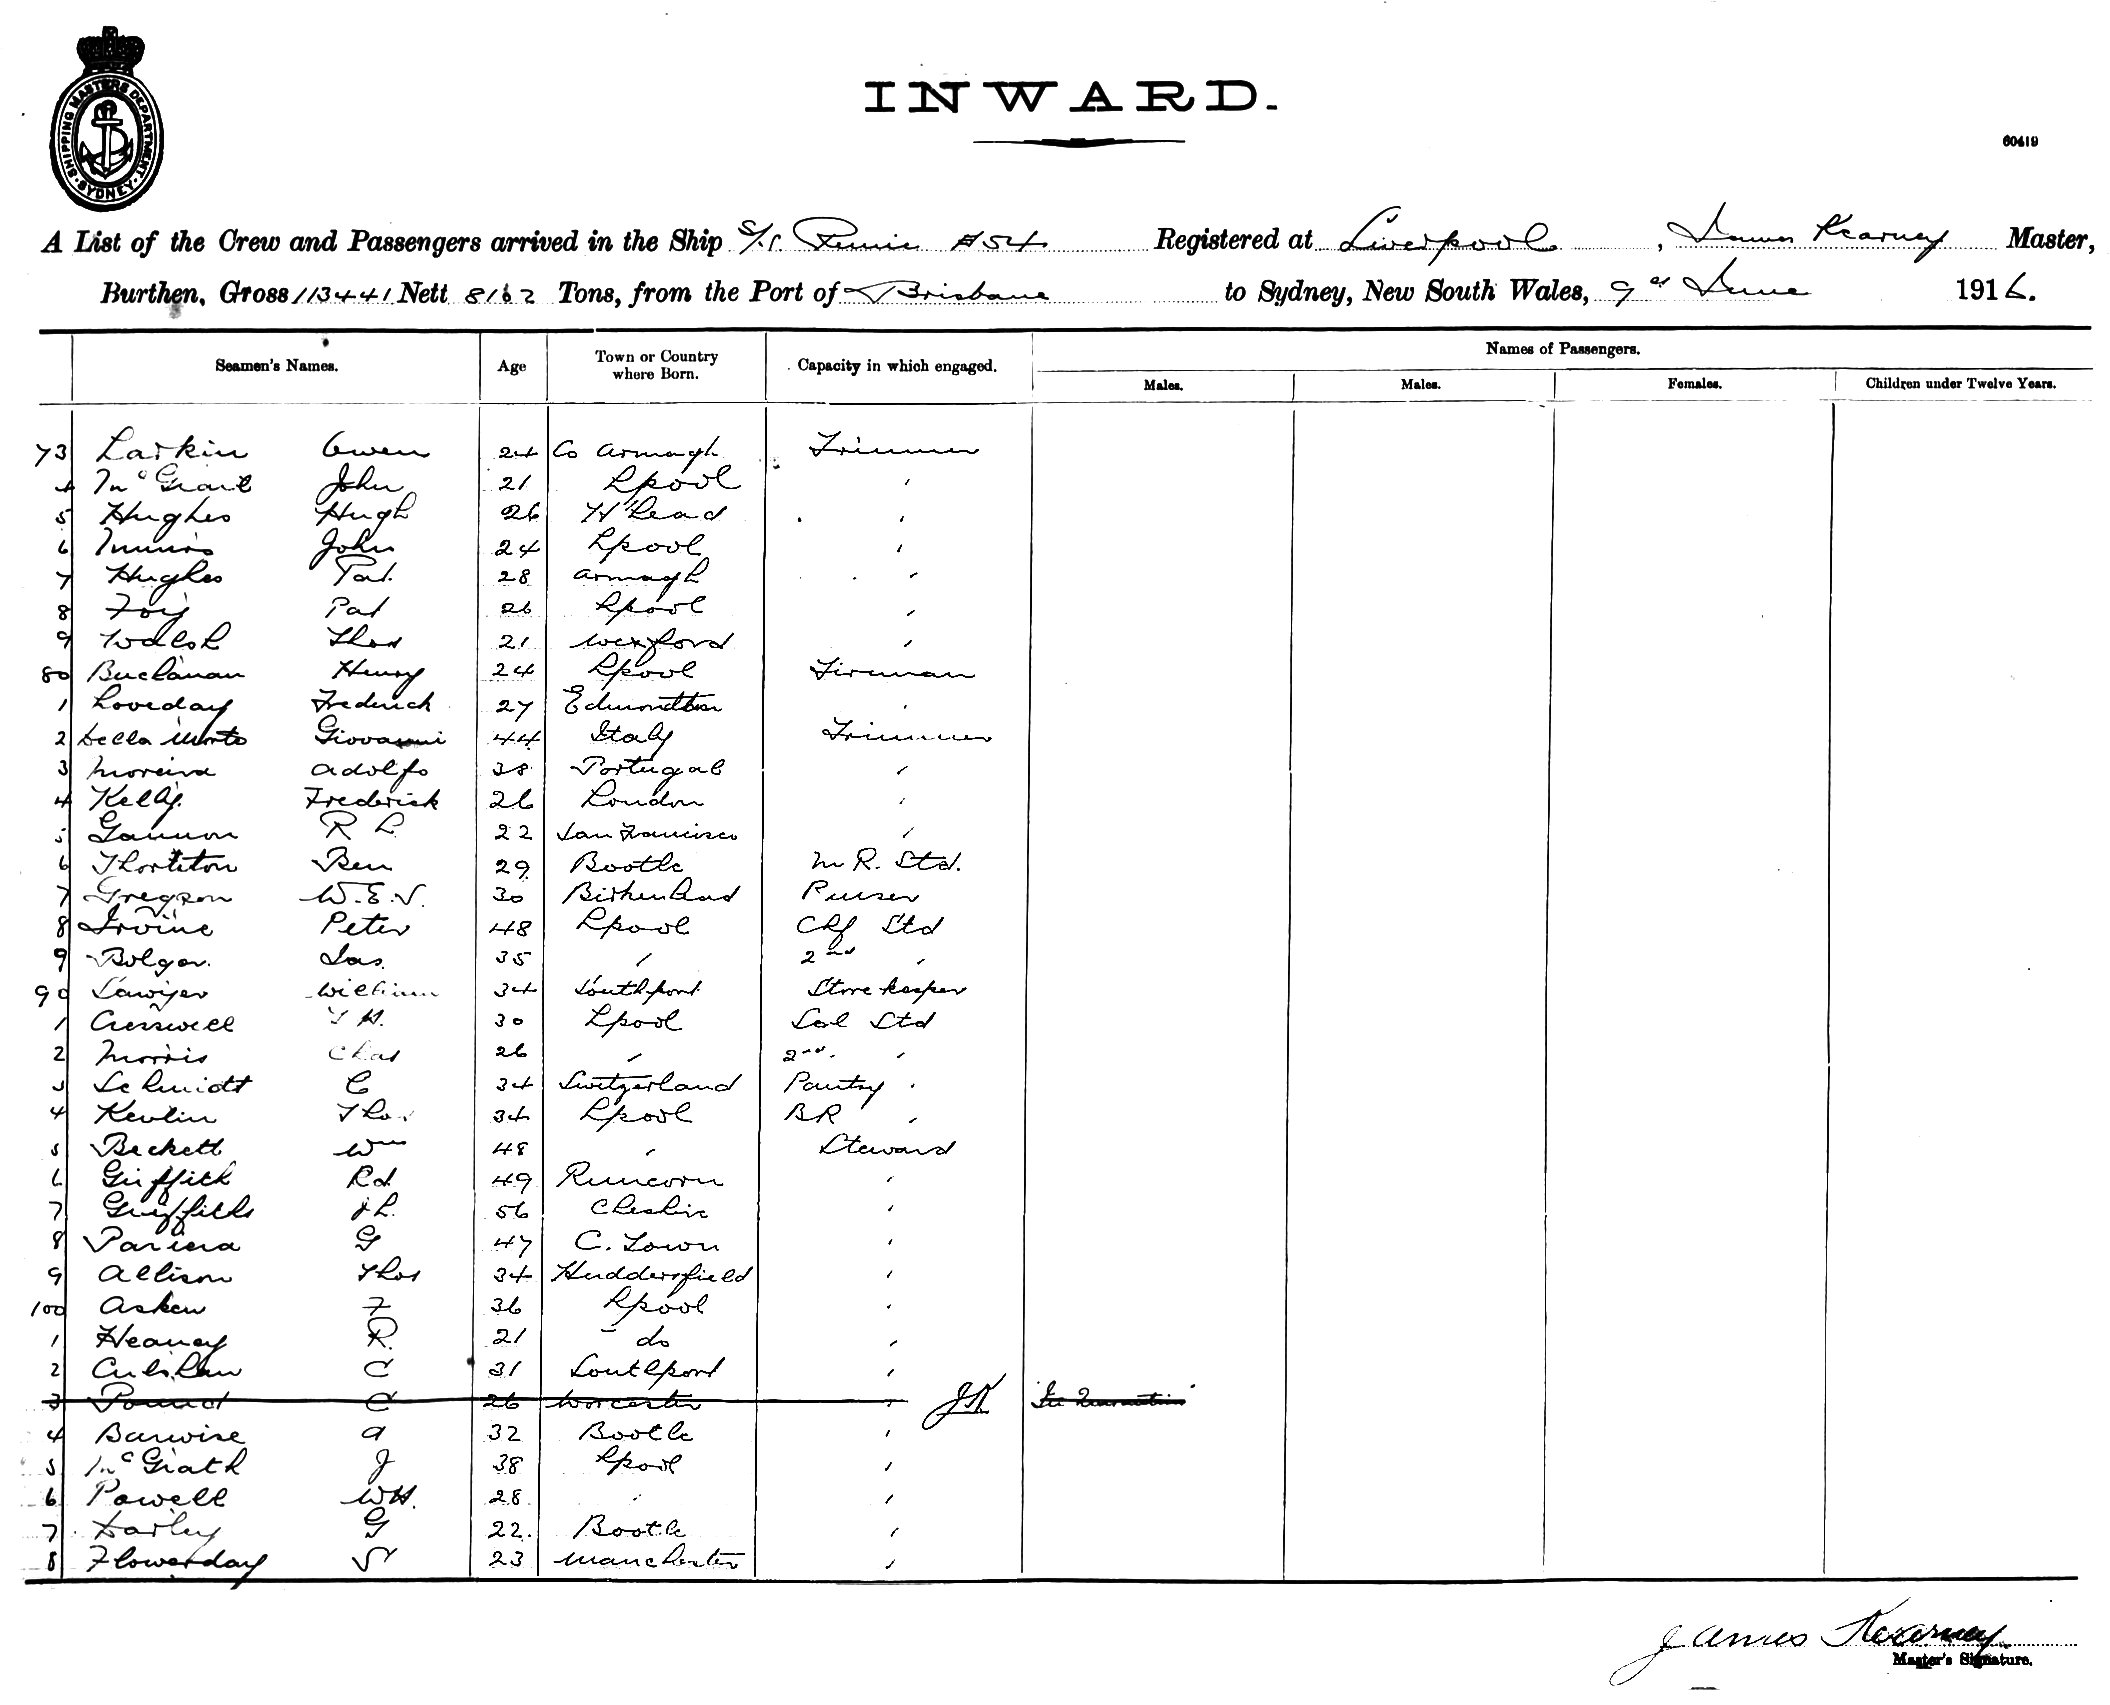 SHIPPING MASTERS DEPARTMENT. SYDNEY.
INWARD.
60419
A List of the Crew and Passengers arrived in the Ship S/S A54 Registered at Liverpool, James Kearney Master,
Burthen, Gross 113441 Nett 8162 Tons, from the Port of Brisbane to Sydney, New South Wales, 9th June 1916.
Seamen's Names. Age Town or Country where Born. Capacity in which engaged. Names of Passengers.
Males. Males. Females. Children under Twelve Years.
73 Larkin Owen 24 Co Armagh Trimmer
4 McGrail John 21 Lpool "
5 Hughes Hugh 26 H'head "
6 John 24 Lpool "
7 Hughes Pat. 28 Armagh "
8 Foy Pat 26 Lpool "
9 Walsh Thos 21 Wexford "
80 Buchanan Henry 24 Lpool Fireman
1 Loveday Frederick 27 Edmontton "
2 Della Morte Giovanni 44 Italy Trimmer
3 Moreira Adolfo 38 Portugal "
4 Kelly. Frederick 26 London "
5 Gannon R L 22 San Francisco "
6 Ben 29 Bootle M R. Std.
7 Gregson W. E. V. 30 Birkenhead Purser
8 Irvine Peter 48 Lpool Chf Std
9 Bolger. Jas. 35 " 2nd "
90 Sawyer William 34 Southport Storekeeper
1 Cresswell T H. 30 Lpool Sal Std
2 Morris Chas 26 " 2nd. "
3 Schmidt C 34 Switzerland Pantry "
4 Kevlin Thos. 34 Lpool BR "
5 Beckett Wm 48 " Steward
6 Griffith Rd 49 Runcorn "
7 Griffiths J L. 56 Cheshire "
8 Pariera G 47 C. Town "
9 Allison Thos 34 Huddersfield "
100 Askew F 36 Lpool "
1 Heaney R. 21 - do "
2 Culshaw C 31 Southport "
3 Pound C 26 Worcester " JK In Quarantine
4 Barwise A 32 Bootle "
5 McGrath J 38 Lpool "
6 Powell WH. 28 " "
7 Darley G 22. Bootle "
8 Flowerday S 23 Manchester "
James Kearney
Master's Signature.